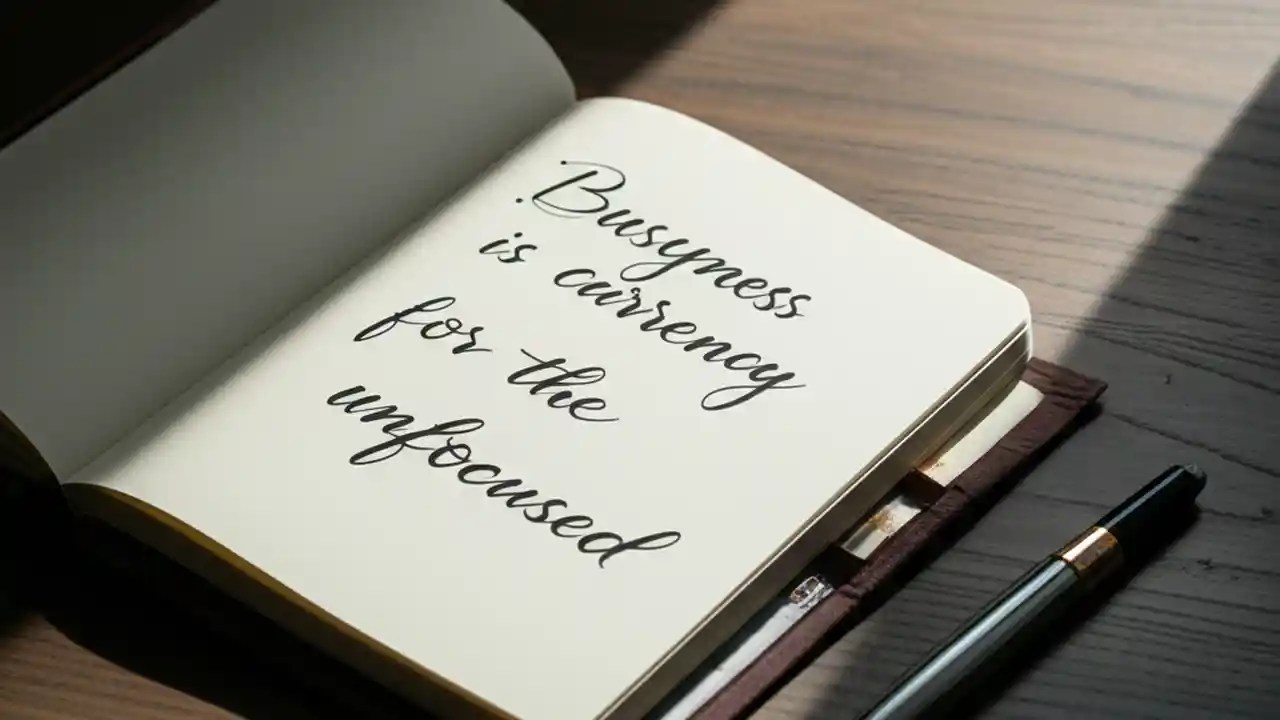 Busyness
is currency
for the
unfocused